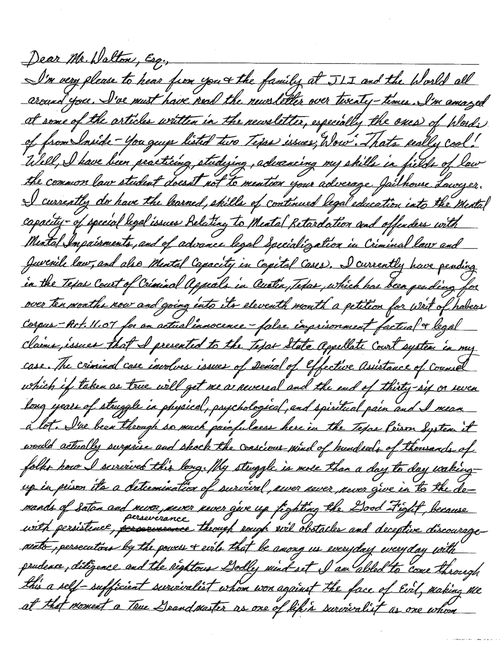 Dear Mr. Dalton, Esq.,
I'm very please to hear from you & the family at JLI and the World all
around you. I've must have read the newsletter over twenty-times. I'm amazed
at some of the articles written in the newsletter, especially the ones of Words
of from Inside - You guys listed two Texas issues, Wow! Thats really cool!
Well, I have been practicing, studying, advancing my skills in fields of law
the common law student doesnt not to mention your adverage Jailhouse Lawyer.
I currently do have the learned, skills of continued legal education into the Mental
capacity - of special legal issues Relating to Mental Retardation and offenders with
Mental Impairments, and of advance legal Specialization in Criminal law and
Juvenile law, and also Mental Capacity in Capital Cases. I currently have pending
in the Texas Court of Criminal Appeals in Austin, Texas, which has been pending for
over ten months now and going into its eleventh month a petition for writ of habeas
corpus - Art. 11.07 for an actual innocence - false imprisonment factual & legal
claims, issues that I presented to the Texas State Appellate Court system in my
case. The criminal case involves issues of denial of Effective Assistance of Counsel
which if taken as true will get me a reversal and the end of thirty-six or seven
long years of struggle in physical, psychological, and spiritual pain and I mean
a lot. I've been through so much painfulness here in the Texas Prison System it
would actually surprise and shock the conscious-mind of hundreds of thousands of
folks how I survived this long. My struggle is more than a day to day waking-
up in prison its a determination of survival, never never never give in to the de-
mands of Satan and never, never never give up fighting the Good Fight because
with persistence, perseverance through rough evil obstacles and deceptive discourage-
ments, persecutors by the powers & evils that be among us everyday everyday with
prudence, diligence and the rightous Godly mind-set I am abled to come through
this a self-sufficient survivalist whom won against the face of Evil, making me
at that moment a True Grandmaster as one of life's survivalist as one whom